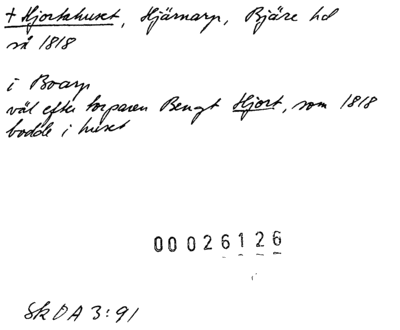 + Hjortahuset, Hjärnarp, Bjäre hd
så 1818
i Boarp
väl efter torparen Bengt Hjort, som 1818
bodde i huset
00026126
SkOA 3:91